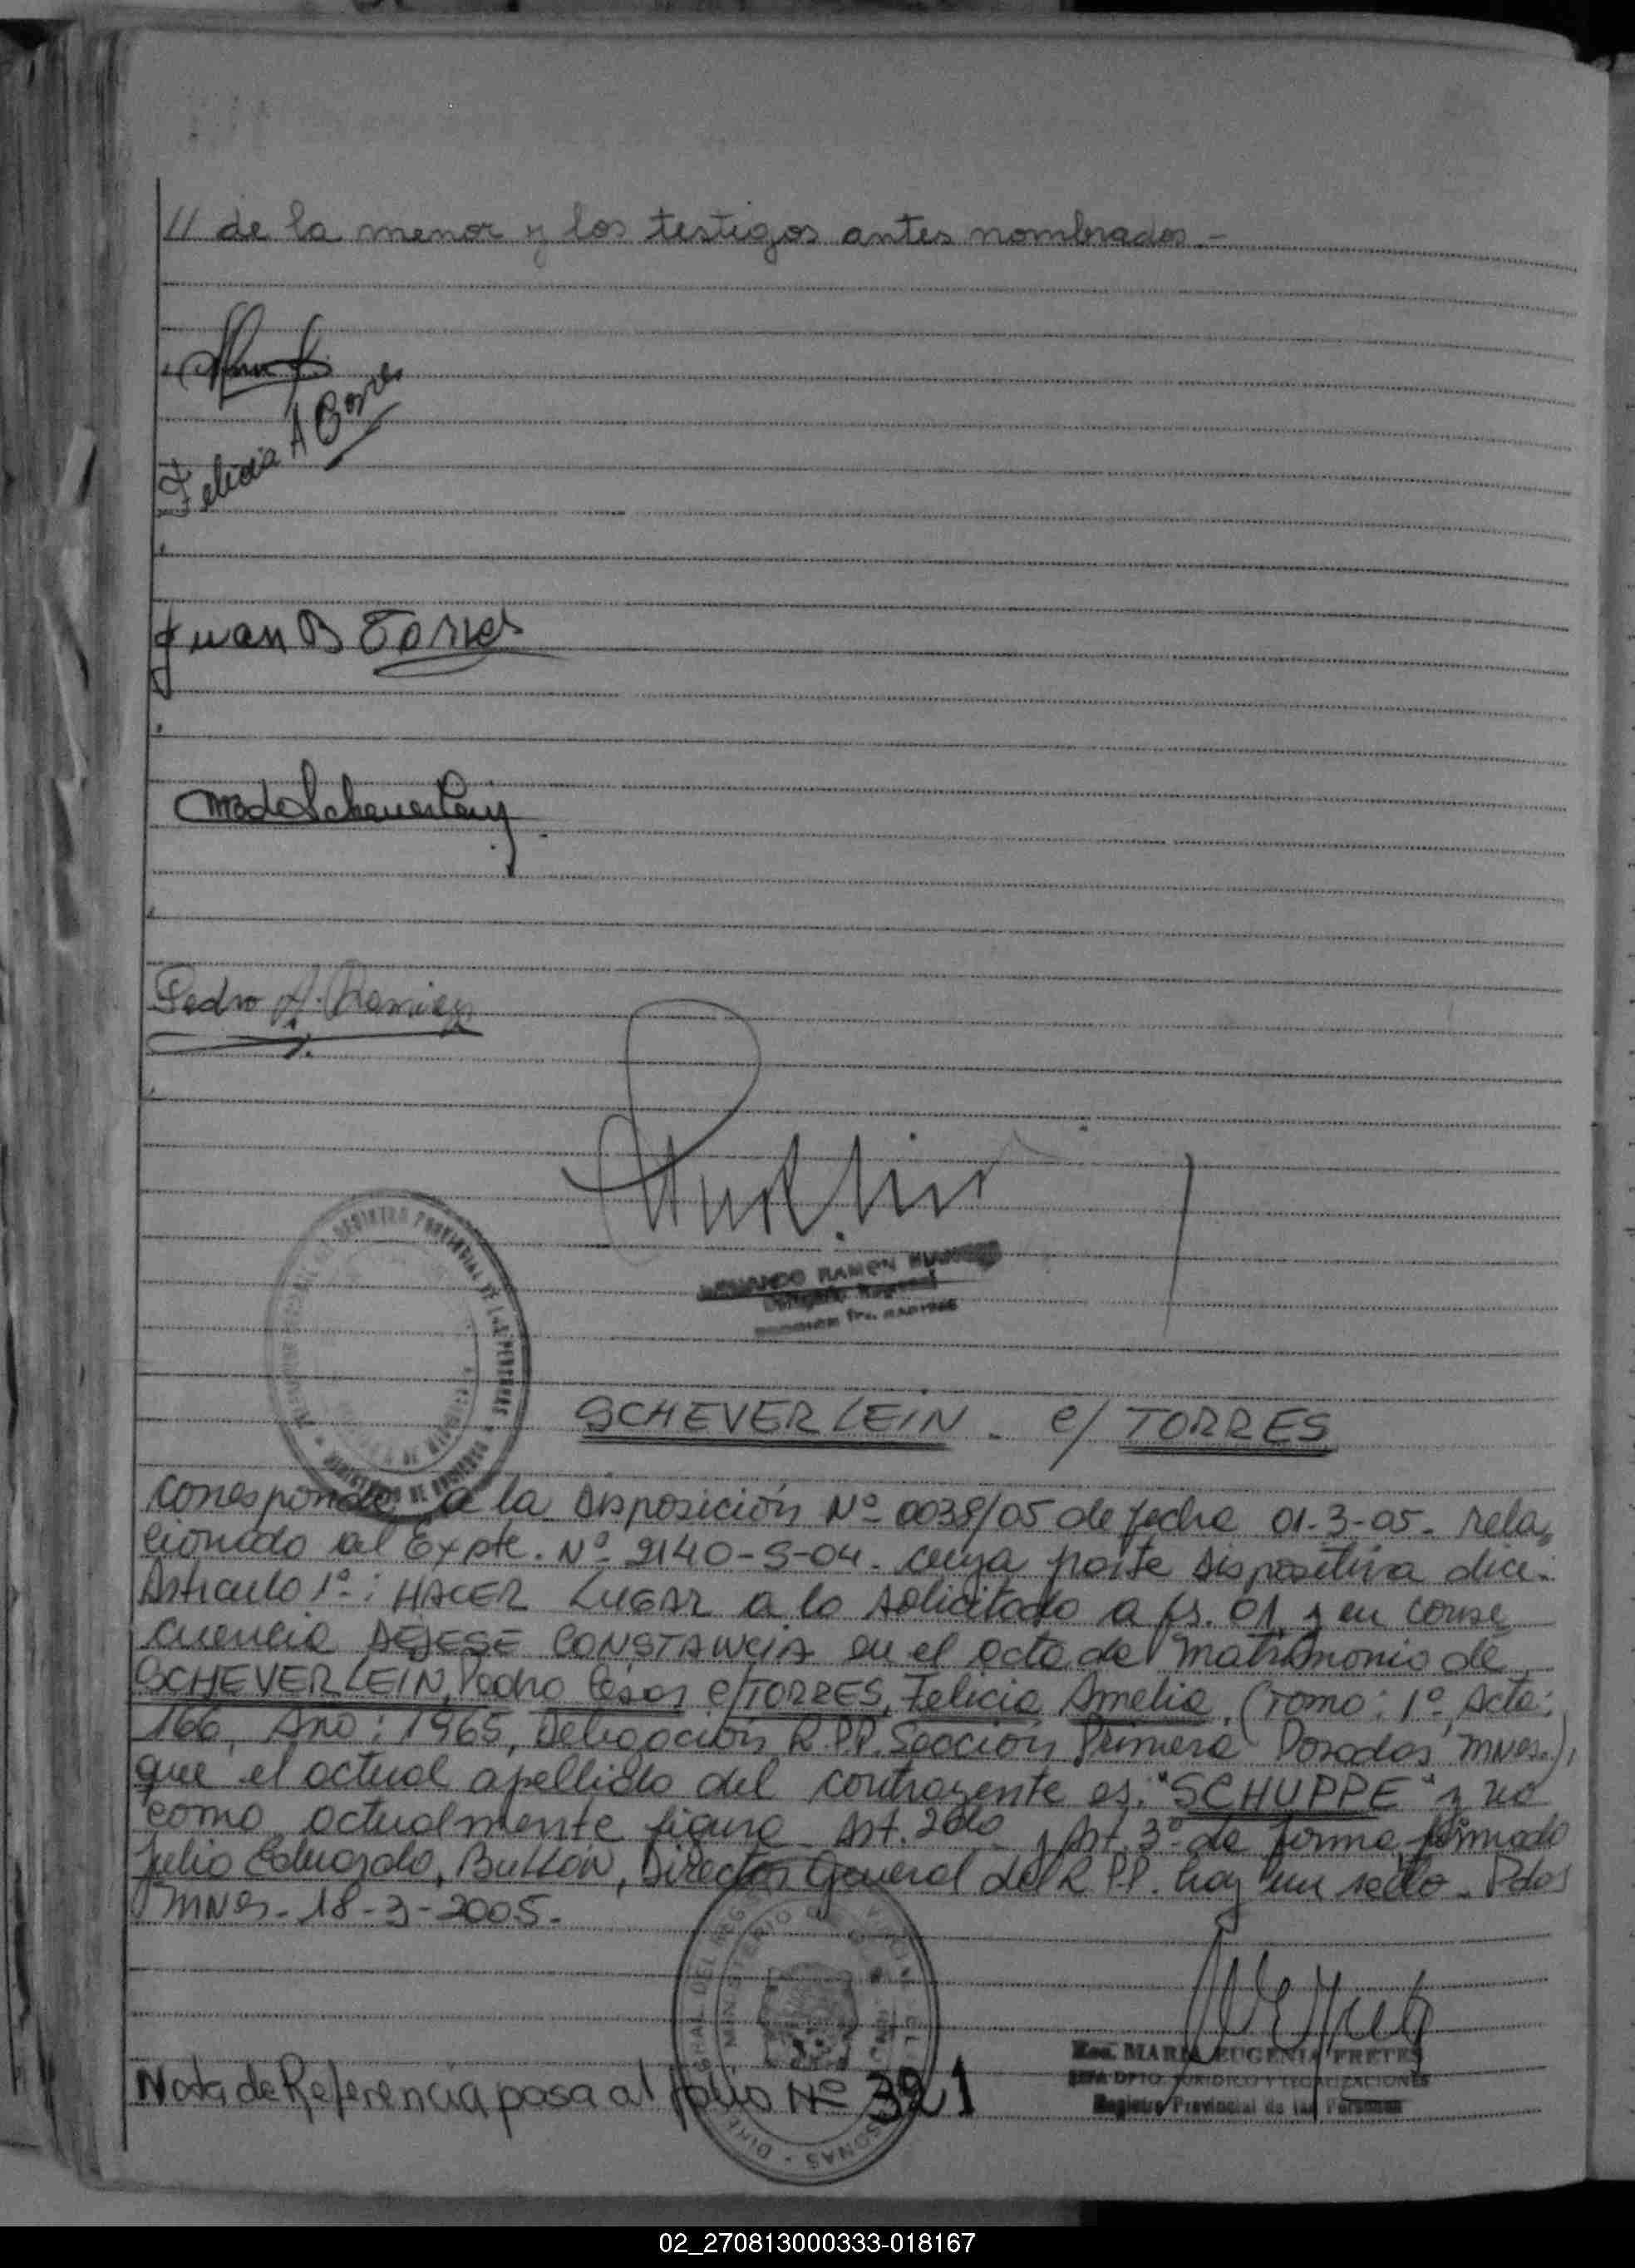 // de la menor y los testigos antes nombrados.-
Felicia A
Juan B Torres
Pedro A. Ramirez
RAMON
REGISTRO PROVINCIAL DE LAS PERSONAS
SCHEVERLEIN. c/ TORRES
Corresponde a la Disposición Nº 0038/05 de fecha 01-3-05. rela
cionado al Expte. Nº 2140-S-04. cuya parte dispositiva dice:
Articulo 1º: HACER LUGAR a lo solicitado a fs. 01 y en conse
cuencia DEJESE CONSTANCIA en el acta de Matrimonio de
SCHEVERLEIN, Pedro Cesar c/TORRES, Felicia Amelia, (Tomo: 1º, Acta:
166, Año: 1965, Delegación R.P.P. Sección Primera Posadas Mnes.),
que el actual apellido del contrayente es: "SCHUPPE" y no
como actualmente figura. Art. 2do y Art. 3º de forma, firmado
Julio Eduardo, Bullón, Director General del R.P.P. hay un sello. Pdas
Mnes. 18-3-2005.
MARIA EUGENIA FRETES
JEFA DPTO. JURIDICO Y LEGALIZACIONES
Registro Provincial de las Personas
Nota de Referencia pasa al folio Nº 321
02_270813000333-018167